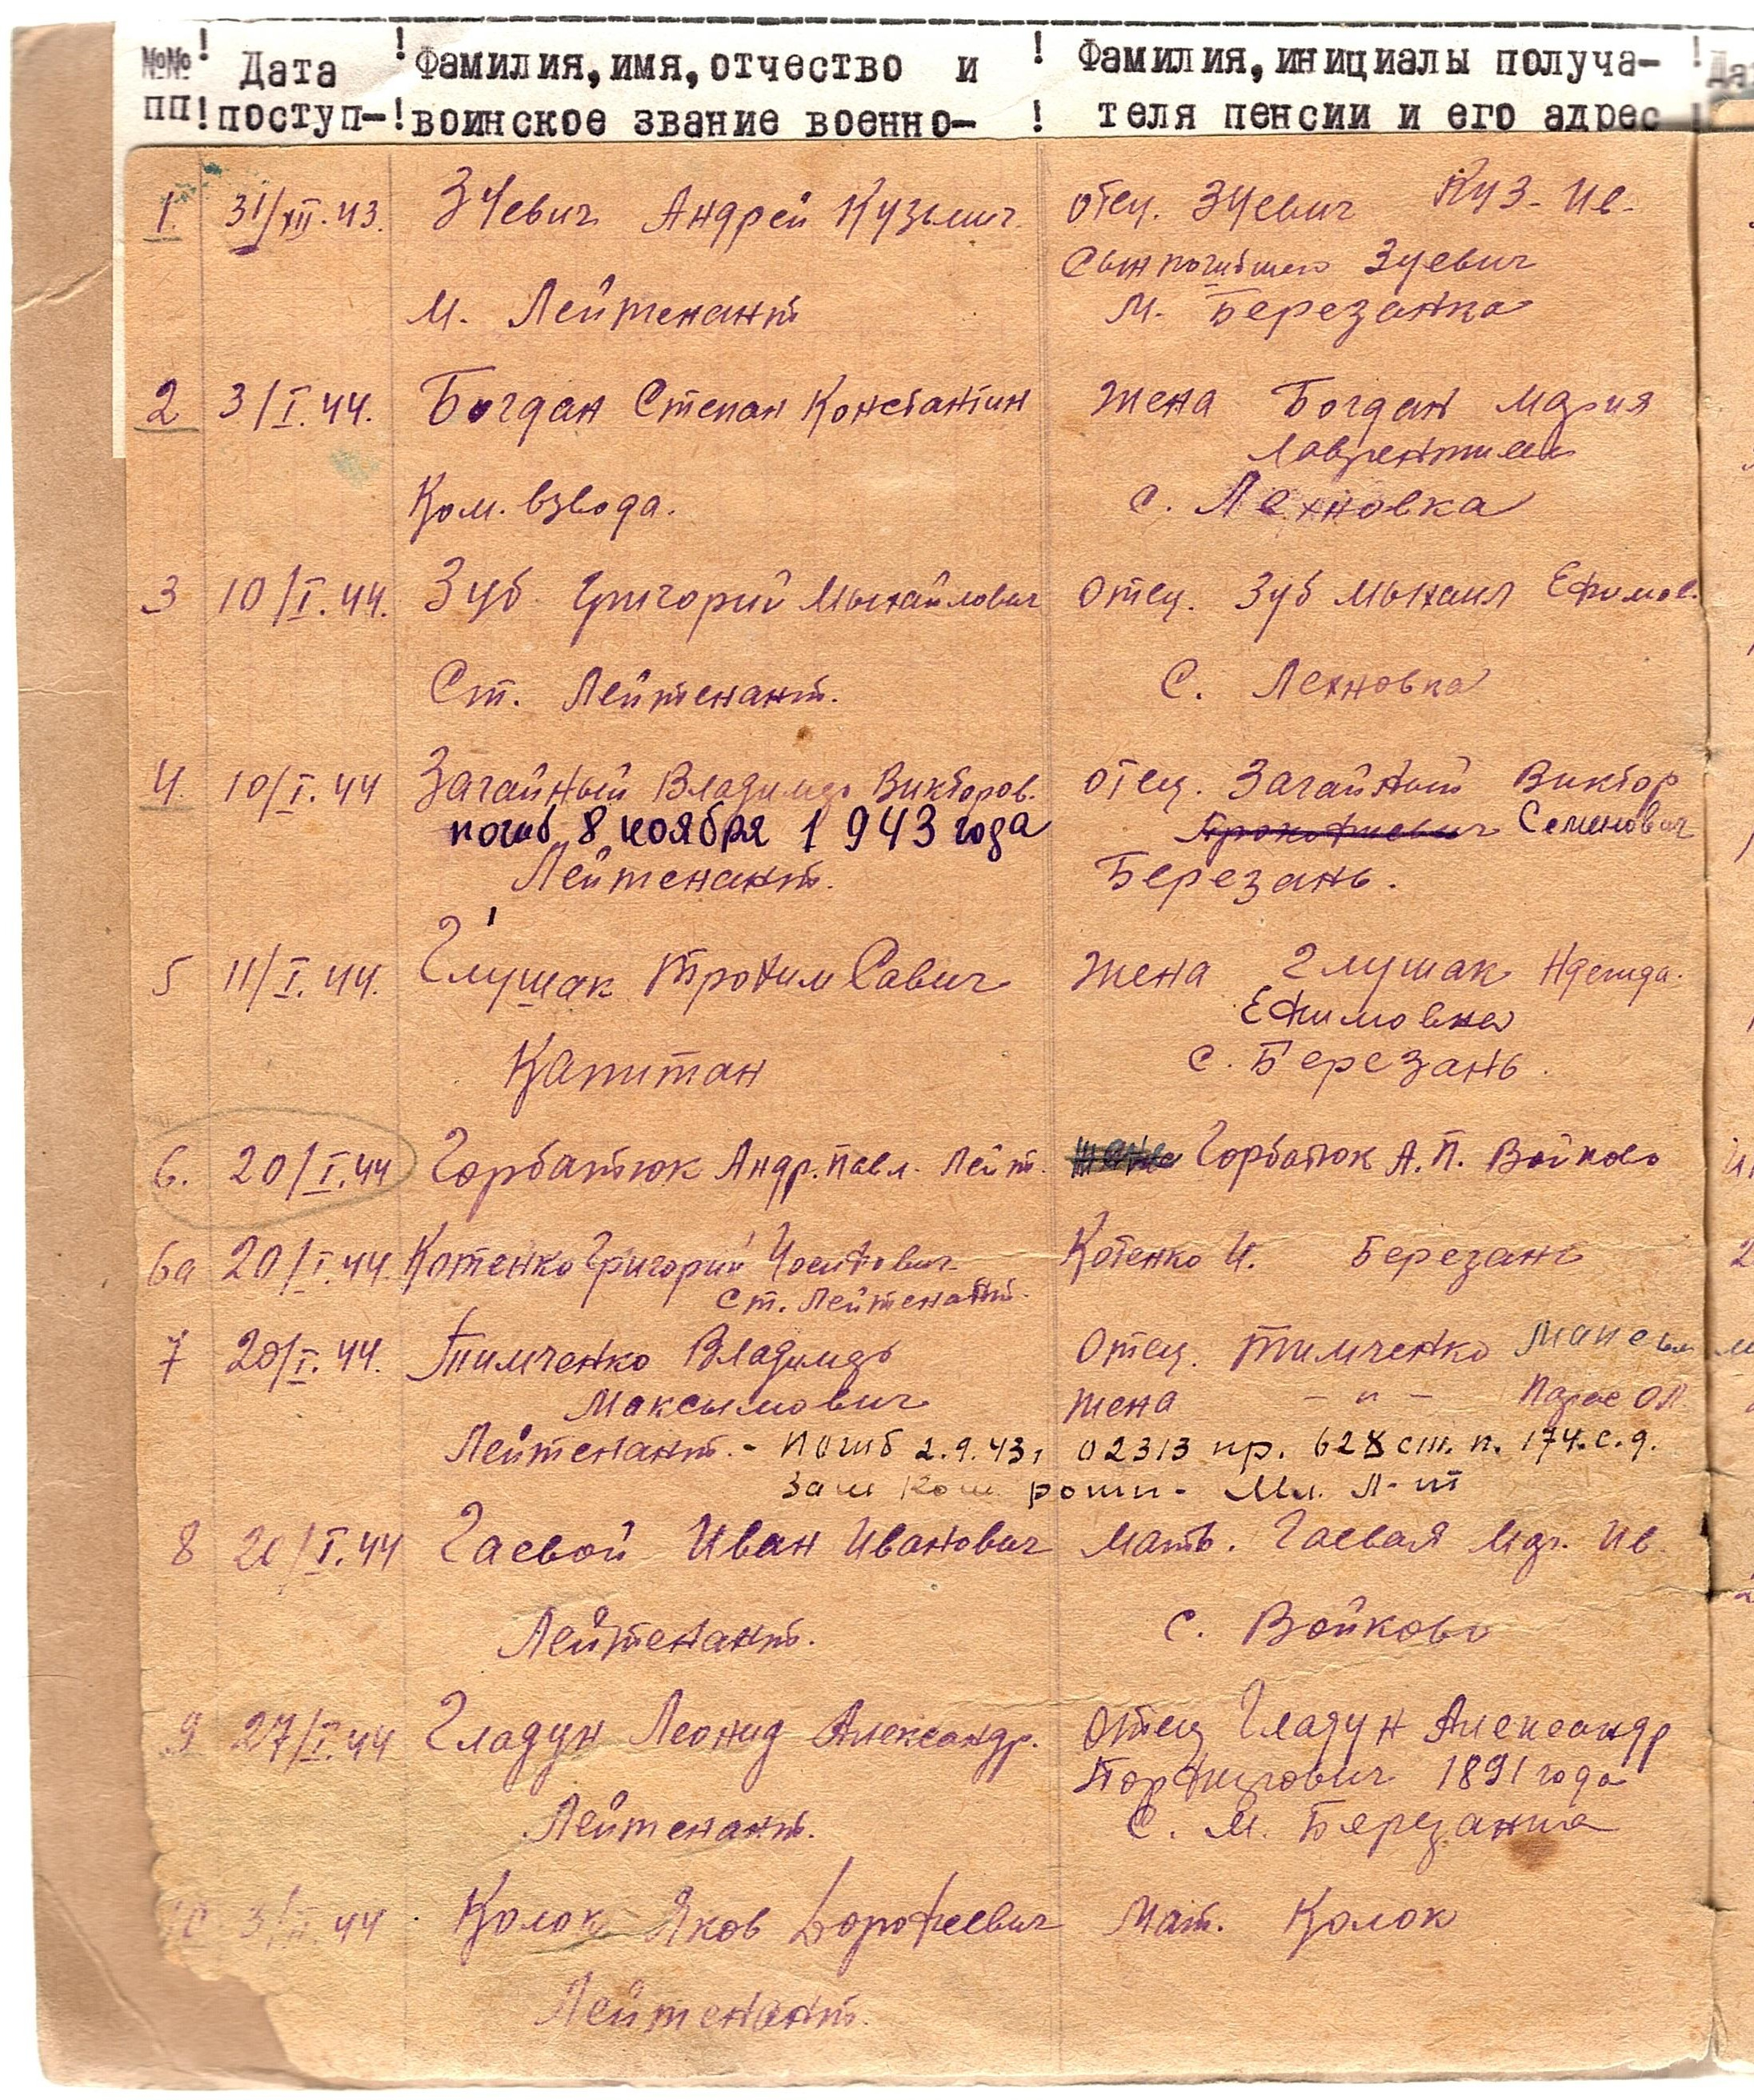 №№ ! Дата ! Фамилия, имя, отчество и ! Фамилия, инициалы получа- !
пп ! поступ- ! воинское звание военно- ! теля пенсии и его адрес !
1. 31/XII.43. Зуевич Андрей Кузьмич отец. Зуевич Куз. Ив.
Сын погибшего Зуевич
М. Лейтенант М. Березанка
2 3/I.44. Богдан Степан Константин жена Богдан Мария
Ком. взвода. с. Лехновка
3 10/I.44. Зуб Григорий Мыхайлович отец. Зуб Мыхаил Ефимов.
Ст. Лейтенант. С. Лехновка
4. 10/I.44 Загайный Владимир Викторов. отец. Загайный Виктор
погиб 8 ноября 1943 года Прокофиевич Семенович
Лейтенант. Березань.
5 11/I.44. Глушак Трофим Савич жена Глушак
Ефимовна
Капитан с. Березань.
6. 20/I.44 Горбатюк Андр. Павл. Лейт. жена Горбатюк А. П. Войково
6а 20/I.44 Котенко Григорий Котенко И. Березань
Ст. Лейтенант.
7 20/I.44. Тимченко Владимир Отец. Тимченко
Максымович жена - " -
Лейтенант. - Погиб 2.9.43, 02313 пр. 628 ст. п. 174. с. д.
Зам Ком роти - Мл. Л-т
8 20/I.44 Гаевой Иван Иванович Мать. Гаевая Ив.
Лейтенант. С. Войково
9 27/I.44 Гладун Леонид Александр. Отец Гладун Александр
Порфирович 1891 года
Лейтенант. С. М. Березанка
10 3/II 44 Колок Яков Дорофеевич Мат. Колок
Лейтенант.